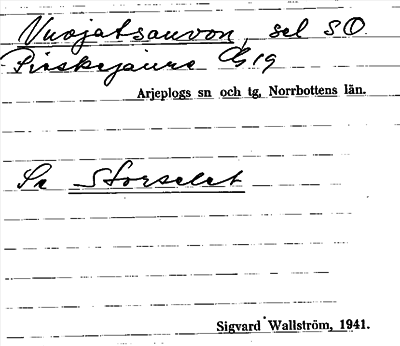 Vuojatsauvon, sel SO
Pieskejaure G19
Arjeplogs sn och tg, Norrbottens län.
Sv Storselet
Sigvard Wallström, 1941.